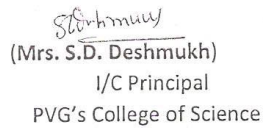 (Mrs. S.D. Deshmukh)
I/C Principal
PVG's College of Science